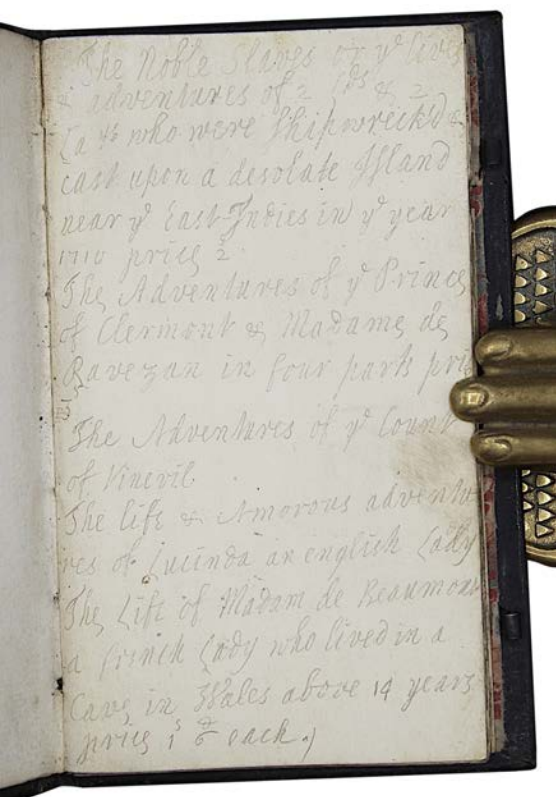 The Noble Slaves or yᵉ lives
& adventures of 2 Lds & 2
La ys who were Shipwreck'd &
cast upon a desolate Island
near yᵉ East-Indies in yᵉ year
1710 price 2
The Adventures of yᵉ Prince
of Clermont & Madame de
Ravezan in four parts pri
The Adventures of yᵉ Count
of Vinevil
The life & Amorous adventu
res of Lucinda an english Lady
The Life of Madam de Beaumont
a french Lady who lived in a
Cave in Wales above 14 years
price 1ˢ 6ᵈ each.)